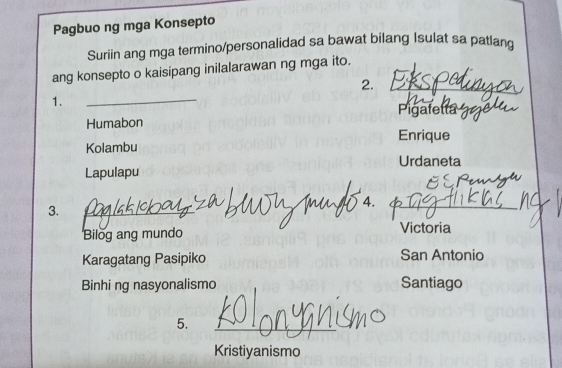 Pagbuo ng mga Konsepto
Suriin ang mga termino/personalidad sa bawat bilang Isulat sa patlang
ang konsepto o kaisipang inilalarawan ng mga ito.
1.
Humabon
Kolambu
Lapulapu
2. Ekspedisyon
ni
Pigafetta
Enrique
Urdaneta
3. buong mundo
Bilog ang mundo
Karagatang Pasipiko
Binhi ng nasyonalismo
4. ng
Victoria
San Antonio
Santiago
5. Kolonyanismo
Kristiyanismo